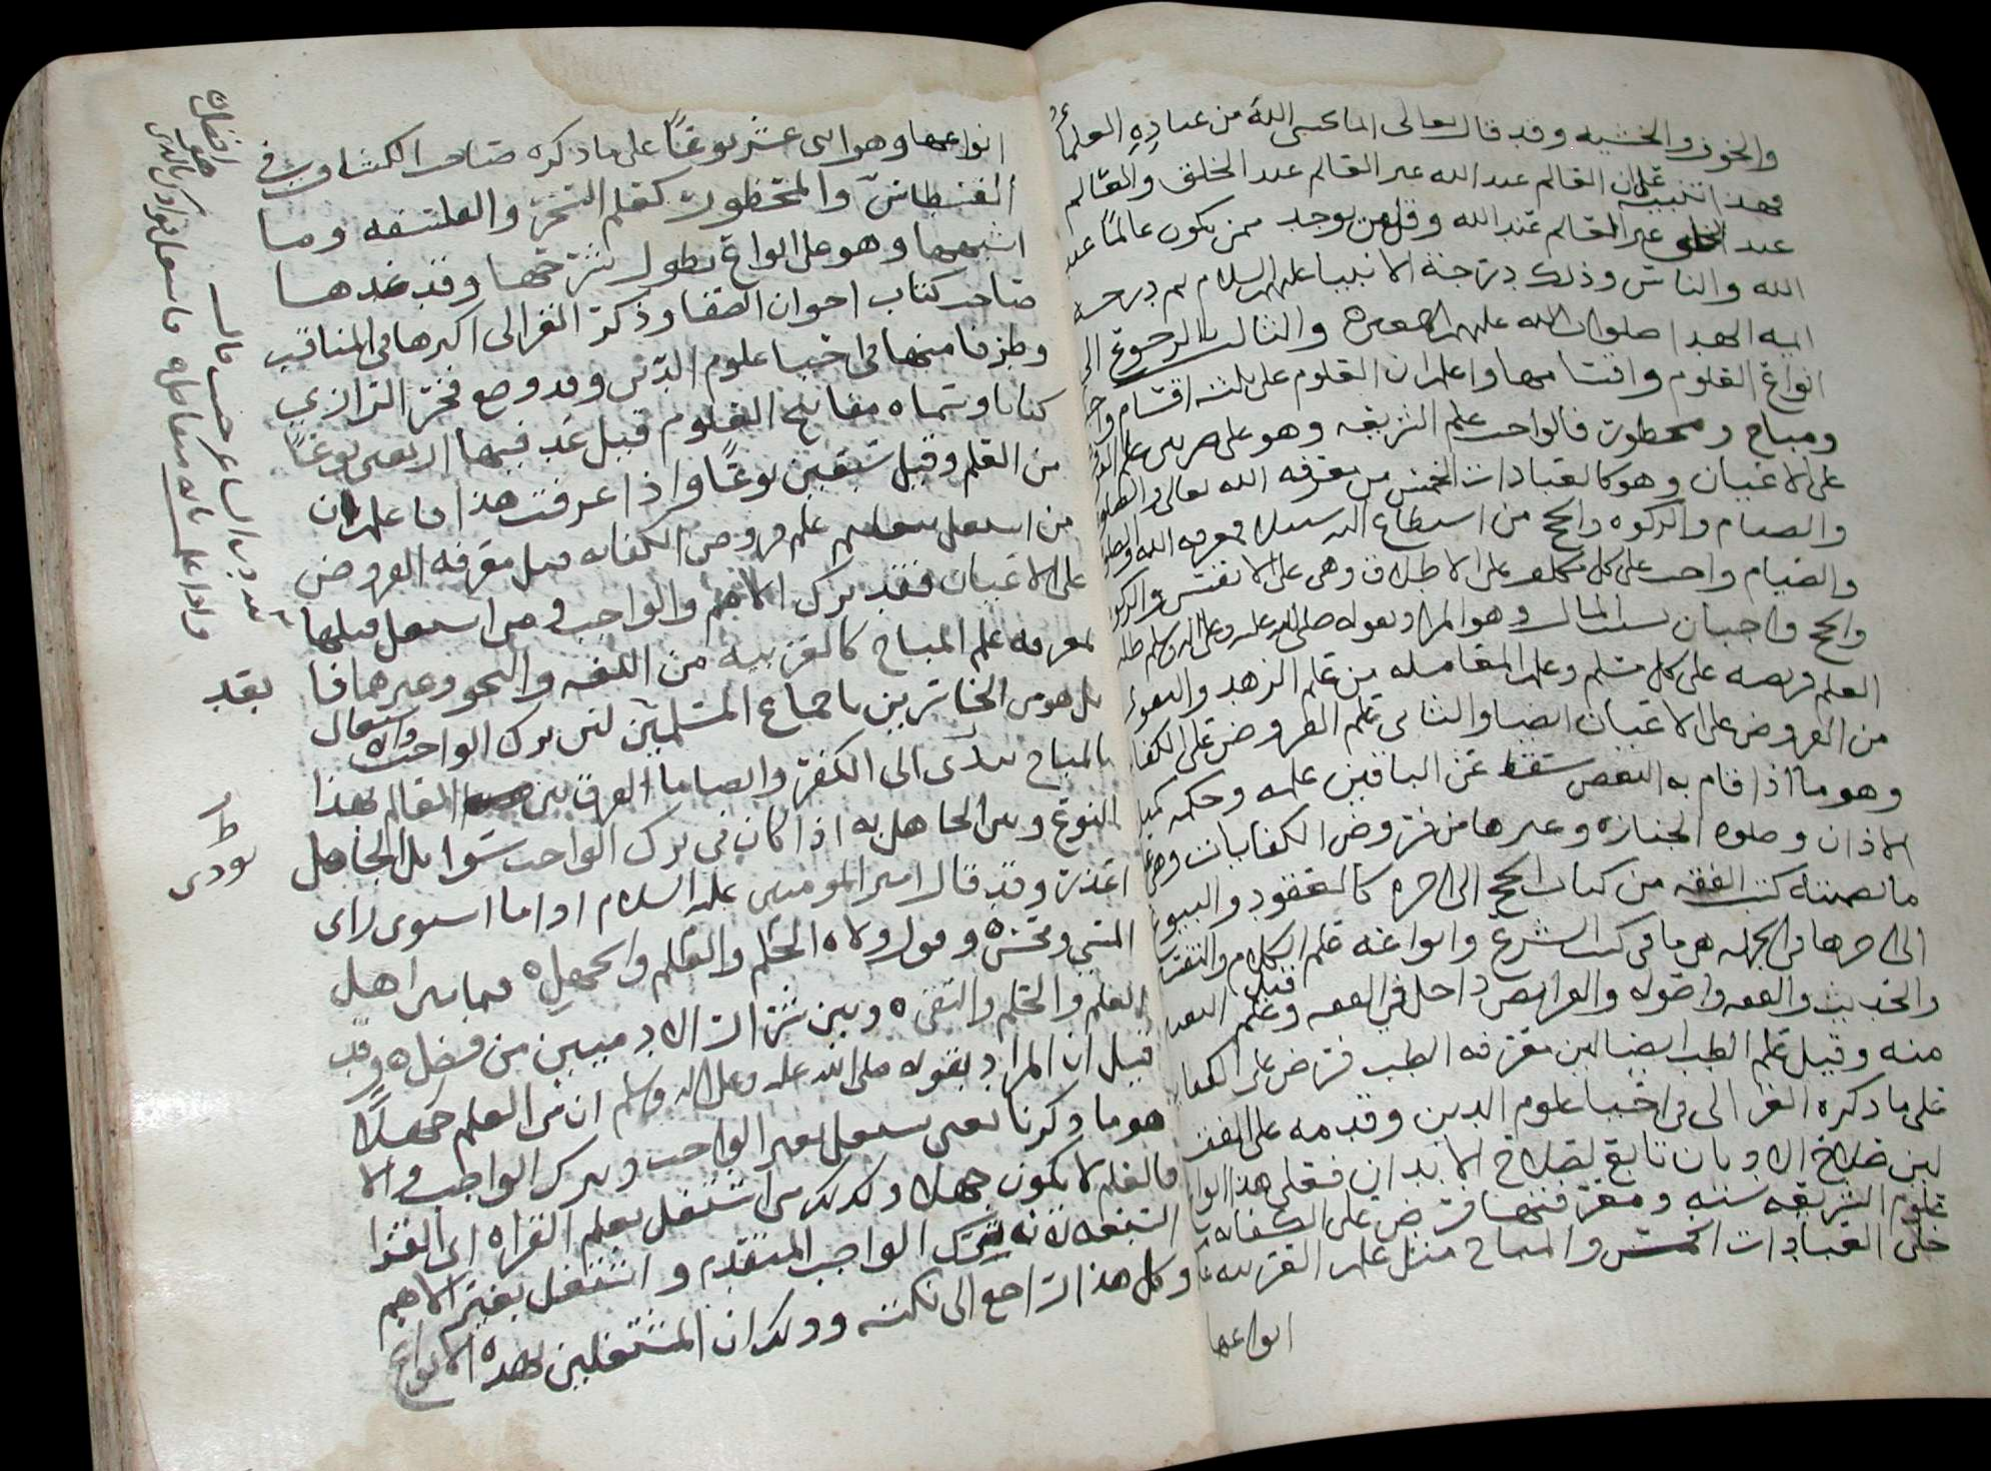 والخوف والخشيه وقد قال تعالى انما يخشى الله من عباده العلماء
فهذا تنبيه على ان العالم عند الله غير العالم عند الخلق والعالم
عند الخلق غير العالم عند الله وقل من يوجد ممن يكون عالمًا عند
الله والناس وذلك درجة الانبيا عليهم السلام ثم درجة
ايمه الهدا صلوات الله عليهم والثالث بالرجوع الى
انواع العلوم واقسامها واعلم ان العلوم على ثلثه اقسام واجب
ومباح ومحظور فالواجب علم الشريعه وهو على ضربين علم الفرض
على الاعيان وهو كالعبادات الخمس من معرفه الله تعالى والصلوه
والصيام والزكوه والحج من استطاع اليه سبيلا فمعرفه الله والصلوه
والصيام واجب على كل مكلف على الاطلاق وهى على الانفس والزكوه
والحج واجبان بسبب المال وهو المراد بقوله صلى الله عليه وعلى اله وسلم طلب
العلم فريضه على كل مسلم وعلم المعامله من علم الزهد والتقوى
من الفروض على الاعيان ايضا والثانى علم الفروض على الكفايه
وهو ما اذا قام به البعض سقط عن الباقين علمه وحكمه كمثل
الاذان وصلوه الجنازه وغيرها من فروض الكفايات وهى
ما تضمنته كتب الفقه من كتاب الحج الى اخره كالعقود والبيوع
الى اخرها وفى الجمله هى ما فى كتب الشرع وانواعه علم الكلام والتفسير
والحديث والفقه واصوله والفرايض داخل فى الفقه وعلم
قيل
منه وقيل علم الطب ايضا لان معرفه الطب فرض على الكفايه
على ما ذكره الغزالى فى احيا علوم الدين وقدمه على الفقه
لان صلاح الاديان تابع لصلاح الابدان فعلى هذا
علوم الشريعه سته ومعرفتها فرض على الكفايه
خلى العبادات الخمس والمباح مثل علم العربيه
انواعها
انواعها وهو اثنى عشر نوعًا على ما ذكره صاحب الكشاف فى
القسطاس والمحظور كعلم السحر والفلسفه وما
اشبهها وهو على انواع يطول شرحها وقد عدها
صاحب كتاب اخوان الصفا وذكر الغزالى اكثرها فى
وطرفا منها فى احيا علوم الدين وقد وضع فخر الرازي
كتابا وسماه مفاتيح العلوم قيل عد فيها اربعين نوعًا
من العلم وقيل ستين نوعًا واذا عرفت هذا فاعلم ان
من اشتغل بعلم فروض الكفايه قبل معرفه الفروض
على الاعيان فقد ترك الاهم والواجب ومن اشتغل قبلها
بمعرفه علم المباح كالعربيه من اللغه والنحو وغيرهما فا
بل هو من الخاسرين باجماع المسلمين لان ترك الواجب والاشتغال
بالمباح يودى الى الكفر وايضا ما الفرق بين العالم بهذا
النوع وبين الجاهل به اذا كان فى ترك الواجب سوا بل الجاهل
اعذر وقد قال امير المومنين عليه السلام اذا ما استوى راى
المسي ومحسن وولاه الحلم والظلم والجهل فما بين اهل
العلم والحلم والتقى وبين شرار الادميين من فضل وقد
قيل ان المراد بقوله صلى الله عليه وعلى اله وسلم ان من العلم جهلًا
هو ما ذكرنا يعنى يشتغل بغير الواجب ويترك الواجب والا
فالعلم لا يكون جهلا وكذلك من اشتغل بعلم القراه اى القرا
السبعه لانه ترك الواجب المتقدم واشتغل بغير الاهم
وكل هذا راجع الى نكته وذلك ان المشتغلين بهذه الانواع
بقد
يودى